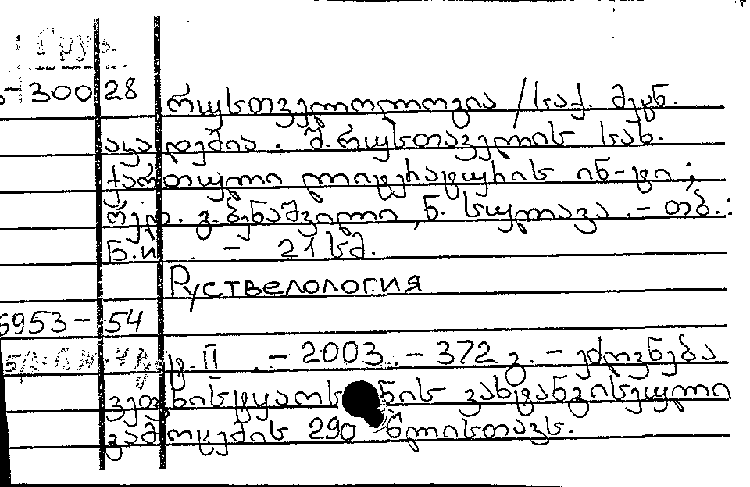 Груз.
-300 28 რუსთველოლოგია / საქ. მეცნ.
აკადემია. შ. რუსთაველის სახ.
ქართული ლიტერატურის ინ-ტი;
რედ. გ. ბენაშვილი, ნ. სულავა. - თბ.:
ნ.ი. - 21 სმ.
Руствелология
6953-54
ტ. II. - 2003. - 372 გ. - ეძღვნება
ვეფხისტყაოსნის ვახტანგისეული
გამოცემის 290 წლისთავს.